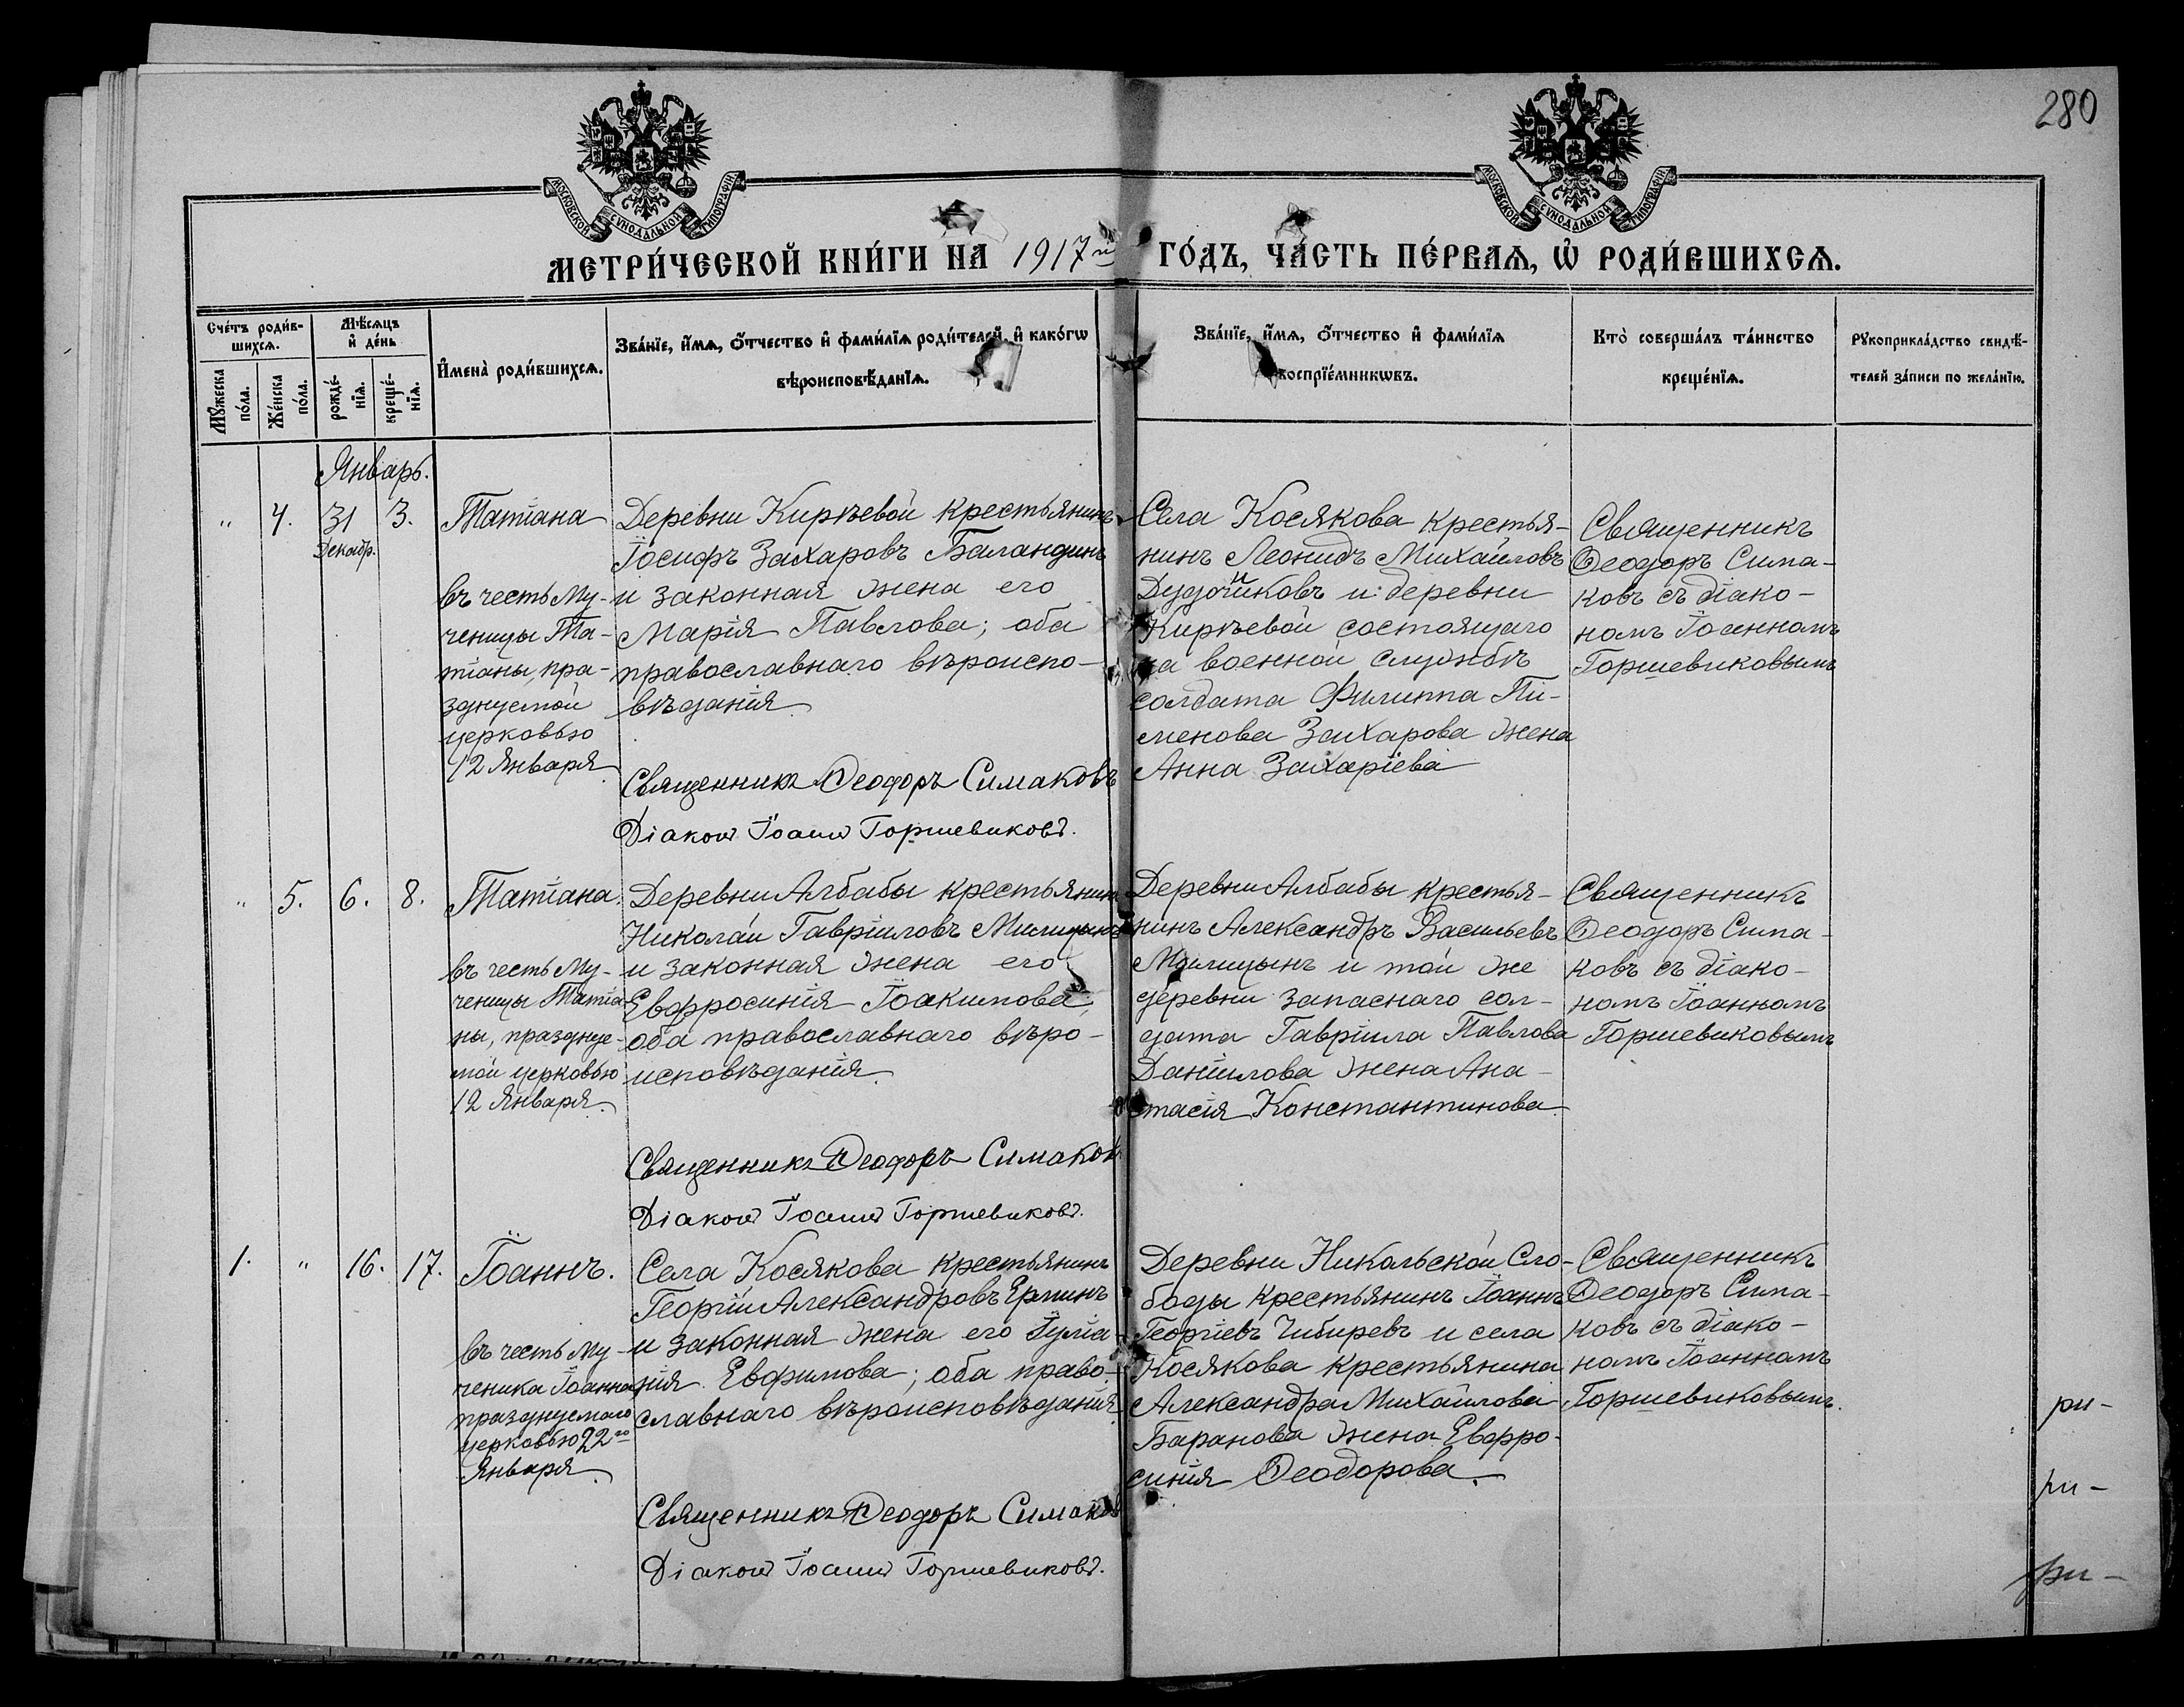 280
МОСКОВСКОЙ СѴНОДАЛЬНОЙ ТИПОГРАФІИ
МОСКОВСКОЙ СѴНОДАЛЬНОЙ ТИПОГРАФІИ
МЕТРИ́ЧЕСКОЙ КНИ́ГИ НА 1917й ГО́ДЪ, ЧА́СТЬ ПЕ́РВАѦ, Ѡ҆ РОДИ́ВШИХСѦ.
Сче́тъ роди́в-
шихсѧ.
Мѣ́сѧцъ
и҆ де́нь
И҆мена̀ роди́вшихсѧ.
Зва́нїе, и҆́мѧ, ѻ҆́тчество и҆ фами́лїѧ роди́телей, и҆ како́гѡ
вѣроисповѣ́данїѧ.
Зва́нїе, и҆́мѧ, ѻ҆́тчество и҆ фами́лїѧ
воспрїе́мникѡвъ.
Кто̀ соверша́лъ та́инство
креще́нїѧ.
Рꙋкоприкла́дство свидѣ́-
телей за́писи по жела́нїю.
Мꙋ́жеска
по́ла.
Же́нска
по́ла.
рожде́-
нїѧ.
креще́-
нїѧ.
Январь.
" 4. 31 3.
Декабр.
Татіана
въ честь Му-
ченицы Та-
тіаны, пра-
зднуемой
церковью
12 Января.
Деревни Киреевой крестьянинъ
Іосифъ Захаровъ Баландинъ
и законная жена его
Марія Павлова; оба
православнаго вѣроиспо-
вѣданія.
Священникъ Ѳеодоръ Симаковъ
Діаконъ Іоаннъ Горшевиковъ.
Села Косякова крестья-
нинъ Леонидъ Михайловъ
Дудочниковъ и деревни
Кирѣевой состоящаго
на военной службѣ
солдата Филиппа Пи-
менова Захарова жена
Анна Захаріева
Священникъ
Ѳеодоръ Сима-
ковъ съ діако-
номъ Іоанномъ
Горшевиковымъ
" 5. 6. 8.
Татіана.
въ честь Му-
ченицы Татіа-
ны, празднуе-
мой церковью
12 Января.
Деревни Албабы крестьянинъ
Николай Гавріиловъ Милицынъ
и законная жена его
Евфросинія Іоакимова;
оба православнаго вѣро-
исповѣданія.
Священникъ Ѳеодоръ Симаковъ
Діаконъ Іоаннъ Горшевиковъ.
Деревни Албабы крестья-
нинъ Александръ Васильевъ
Милицынъ и той же
деревни запаснаго сол-
дата Гавріила Павлова
Даніилова жена Ана-
стасія Константинова
Священникъ
Ѳеодоръ Сима-
ковъ съ діако-
номъ Іоанномъ
Горшевиковымъ
1. " 16. 17.
Іоаннъ.
въ честь му-
ченика Іоанна
празднуемаго
церковью 22го
Января.
Села Косякова крестьянинъ
Георгій Александровъ Ерминъ
и законная жена его Іуліа-
нія Евфимова; оба право-
славнаго вѣроисповѣданія.
Священникъ Ѳеодоръ Симаковъ
Діаконъ Іоаннъ Горшевиковъ.
Деревни Никольской Сло-
боды крестьянинъ Іоаннъ
Георгіевъ Чибиревъ и села
Косякова крестьянина
Александра Михайлова
Баранова жена Евфро-
синія Ѳеодорова.
Священникъ
Ѳеодоръ Сима-
ковъ съ діако-
номъ Іоанномъ
Горшевиковымъ.
ри-
ри-
ри-